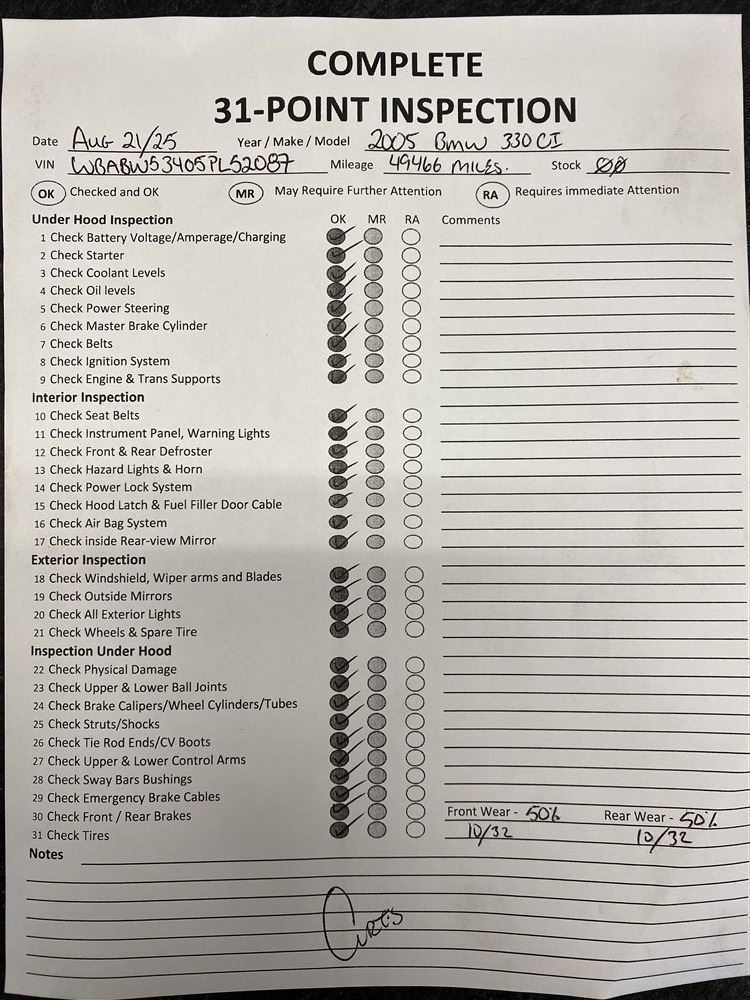 COMPLETE
31-POINT INSPECTION
Date Aug 21/25 Year / Make / Model 2005 BMW 330 CI
VIN WBABW53405PL52087 Mileage 49466 MILES. Stock 00
OK Checked and OK MR May Require Further Attention RA Requires immediate Attention
Under Hood Inspection OK MR RA Comments
1 Check Battery Voltage/Amperage/Charging
2 Check Starter
3 Check Coolant Levels
4 Check Oil levels
5 Check Power Steering
6 Check Master Brake Cylinder
7 Check Belts
8 Check Ignition System
9 Check Engine & Trans Supports
Interior Inspection
10 Check Seat Belts
11 Check Instrument Panel, Warning Lights
12 Check Front & Rear Defroster
13 Check Hazard Lights & Horn
14 Check Power Lock System
15 Check Hood Latch & Fuel Filler Door Cable
16 Check Air Bag System
17 Check inside Rear-view Mirror
Exterior Inspection
18 Check Windshield, Wiper arms and Blades
19 Check Outside Mirrors
20 Check All Exterior Lights
21 Check Wheels & Spare Tire
Inspection Under Hood
22 Check Physical Damage
23 Check Upper & Lower Ball Joints
24 Check Brake Calipers/Wheel Cylinders/Tubes
25 Check Struts/Shocks
26 Check Tie Rod Ends/CV Boots
27 Check Upper & Lower Control Arms
28 Check Sway Bars Bushings
29 Check Emergency Brake Cables
30 Check Front / Rear Brakes Front Wear - 50% Rear Wear - 50%
31 Check Tires 10/32 10/32
Notes
Curtis